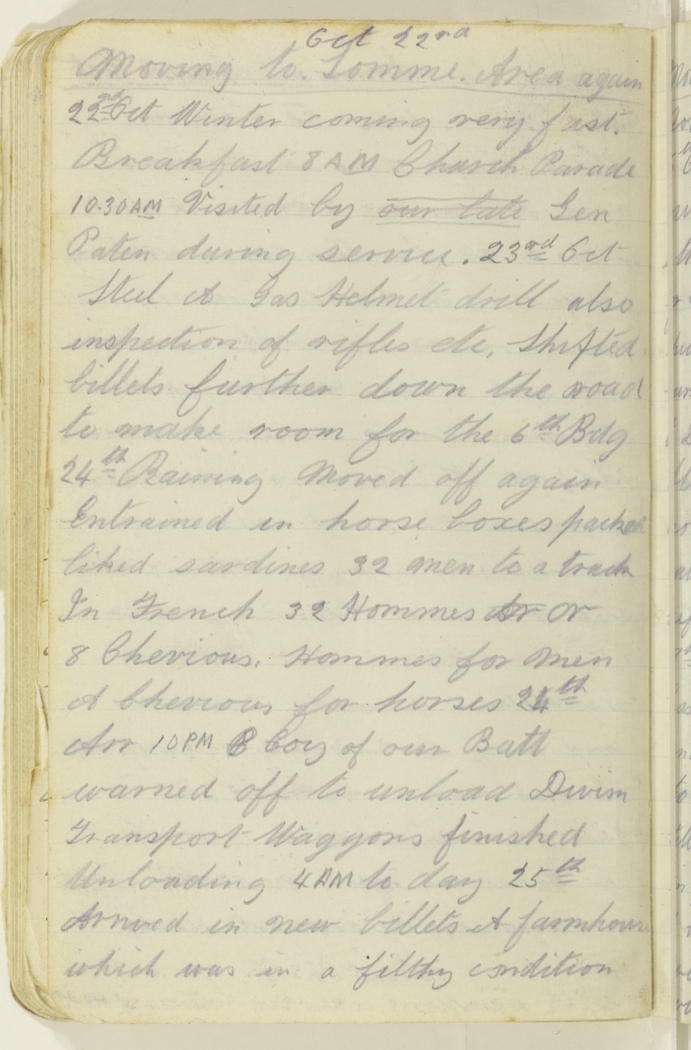 Oct 22nd
Moving to Somme Area again
22nd Oct Winter coming very fast.
Breakfast 8 AM Church Parade
10.30 AM Visited by our late Gen
Paten during service. 23rd Oct
Steel & Gas Helmet drill also
inspection of rifles etc, Shifted
billets further down the road
to make room for the 6th Bdg
24th Raining Moved off again
Entrained in horse boxes packed
liked sardines 32 men to a truck
In French 32 Hommes or
8 Chevious. Hommes for men
& Chevious for horses 24th
Arr 10 PM B Coy of our Batt
warned off to unload Divisn
Transport Waggons finished
Unloading 4 AM to day 25th
Arrived in new billets A farmhouse
which was in a filthy condition